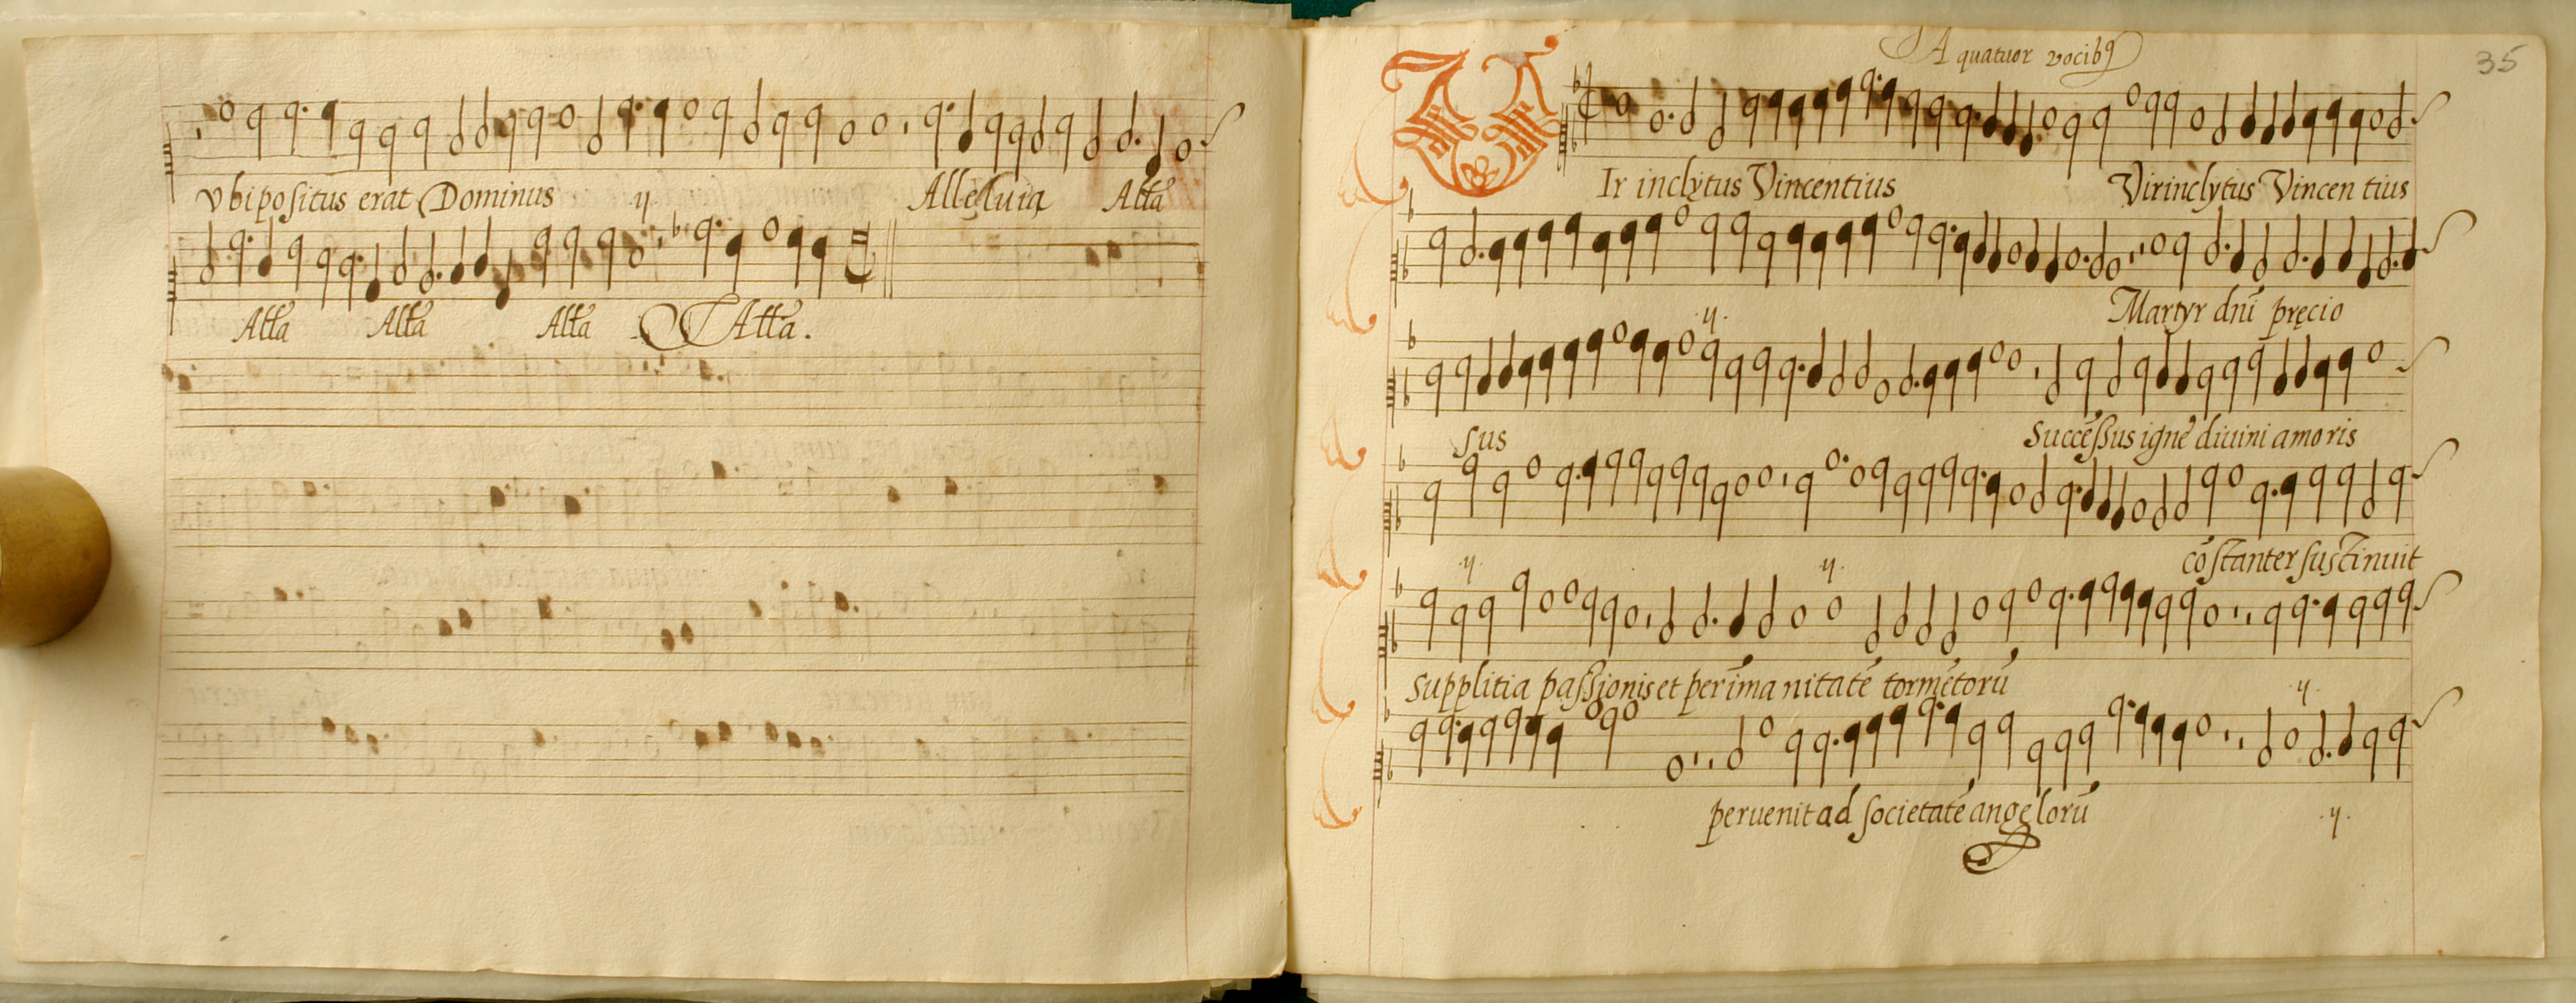 vbi positus erat Dominus ij Alleluia Alla
Alla Alla Alla Alla.
A quatuor vocibꝰ
35
VIr inclytus Vincentius Vir inclytus Vincentius
Martyr dn̄i pręcio
ij.
sus Succēssus igne diuini amoris
cōstanter sustinuit
ij. ij.
supplitia passionis et per īmanitatē tormētorū
ij.
peruenit ad societatē angelorū ij.